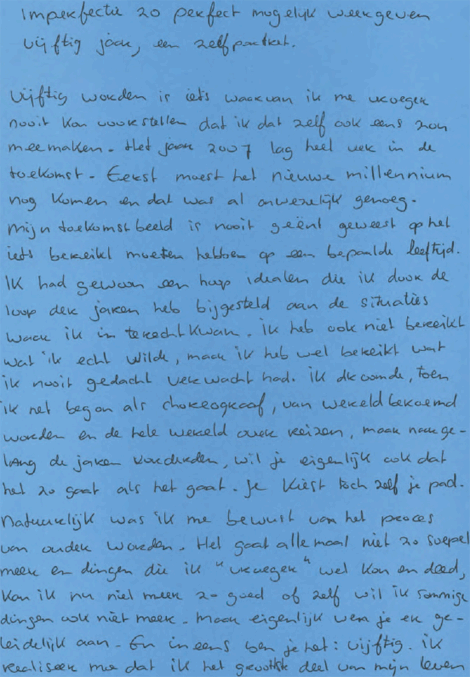 Imperfectie zo perfect mogelijk weergeven
Vijftig jaar, een zelfportret.
Vijftig worden is iets waarvan ik me vroeger
nooit kon voorstellen dat ik dat zelf ook eens zou
meemaken. Het jaar 2007 lag heel ver in de
toekomst. Eerst moest het nieuwe millennium
nog komen en dat was al onwezelijk genoeg.
Mijn toekomstbeeld is nooit geënt geweest op het
iets bereikt moeten hebben op een bepaalde leeftijd.
Ik had gewoon een hoop idealen die ik door de
loop der jaren heb bijgesteld aan de situaties
waar ik in terecht kwam. Ik heb ook niet bereikt
wat ik echt wilde, maar ik heb wel bereikt wat
ik nooit gedacht verwacht had. Ik droomde, toen
ik net begon als choreograaf, van wereldberoemd
worden en de hele wereld over reizen, maar narge-
lang de jaren vorderden, wil je eigenlijk ook dat
het zo gaat als het gaat. Je kiest toch zelf je pad.
Natuurlijk was ik me bewust van het proces
van ouder worden. Het gaat allemaal niet zo soepel
meer en dingen die ik "vroeger" wel kon en deed,
kan ik nu niet meer zo goed of zelf wil ik sommige
dingen ook niet meer. Maar eigenlijk wen je er ge-
leidelijk aan. En ineens ben je het: vijftig. Ik
realiseer me dat ik het grootste deel van mijn leven